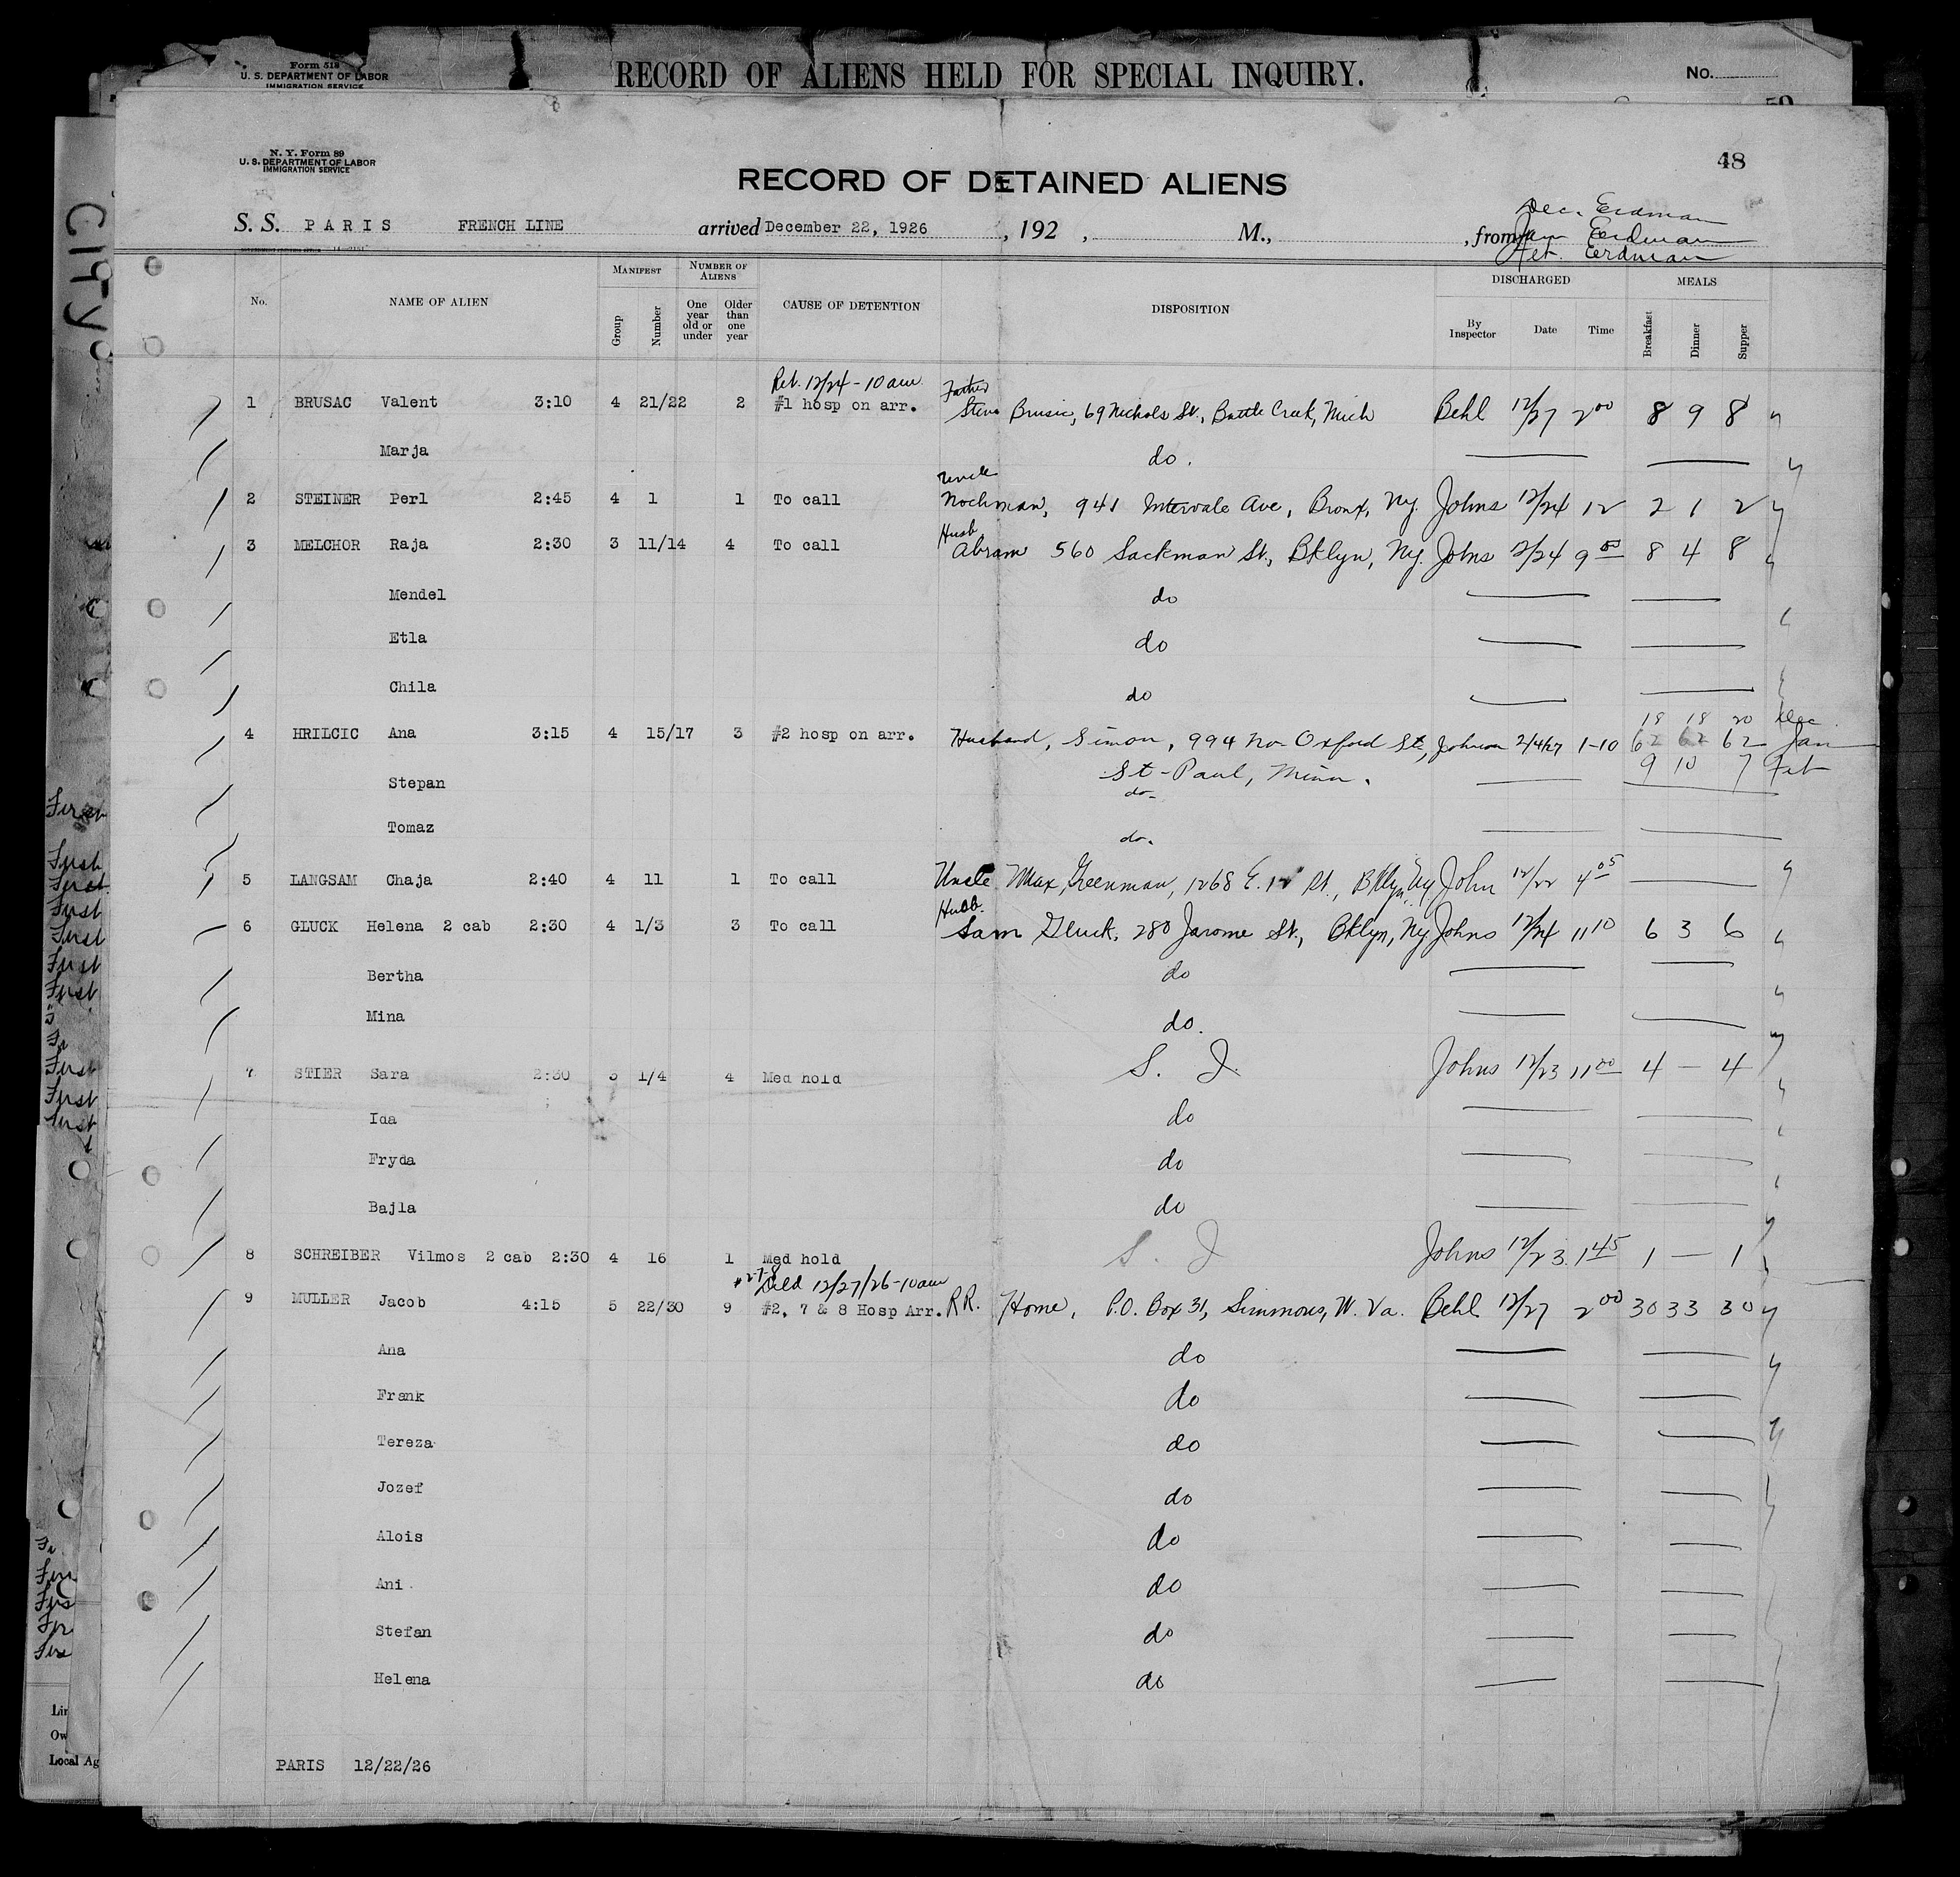 Form 518
U. S. DEPARTMENT OF LABOR
IMMIGRATION SERVICE
RECORD OF ALIENS HELD FOR SPECIAL INQUIRY.
No.
50
CITY
N. Y. Form 89
U. S. DEPARTMENT OF LABOR
IMMIGRATION SERVICE
48
RECORD OF DETAINED ALIENS
Dec. Erdman
S. S. PARIS FRENCH LINE arrived December 22, 1926 , 192 , M., , from Jan Erdman
Feb. Erdman
No. NAME OF ALIEN MANIFEST Group Number NUMBER OF ALIENS One year old or under Older than one year CAUSE OF DETENTION DISPOSITION DISCHARGED By Inspector Date Time MEALS Breakfast Dinner Supper
Ret. 12/24 - 10 am Father
1 BRUSAC Valent 3:10 4 21/22 2 #1 hosp on arr. Steve Brusic, 69 Nichols St., Battle Creek, Mich Behl 12/27 2 00 8 9 8
Marja do.
Uncle
2 STEINER Perl 2:45 4 1 1 To call Nochman, 941 Intervale Ave, Bronx, Ny. Johns 12/24 12 2 1 2
Husb
3 MELCHOR Raja 2:30 3 11/14 4 To call Abram 560 Sackman St., Bklyn, Ny. Johns 12/24 9 00 8 4 8
Mendel do
Etla do
Chila do
18 18 20 Dec.
4 HRILCIC Ana 3:15 4 15/17 3 #2 hosp on arr. Husband, Simon, 994 No Oxford St., Johnson 2/4/27 1-10 62 62 62 Jan
St-Paul, Minn. 9 10 7 Feb
Stepan do-
Tomaz do.
5 LANGSAM Chaja 2:40 4 11 1 To call Uncle Max Greenman, 1268 E. 12 St., Bklyn, Ny John 12/22 4 05
Husb.
6 GLUCK Helena 2 cab 2:30 4 1/3 3 To call Sam Gluck, 280 Jarome St., Bklyn, Ny Johns 12/24 11 10 6 3 6
Bertha do
Mina do.
7 STIER Sara 2:30 3 1/4 4 Med hold S. I. Johns 12/23 11 00 4 — 4
Ida do
Fryda do
Bajla do
8 SCHREIBER Vilmos 2 cab 2:30 4 16 1 Med hold S. I Johns 12/23 1 45 1 — 1
#2-7-8
12/27/26-10am
9 MULLER Jacob 4:15 5 22/30 9 #2, 7 & 8 Hosp Arr. RR. Home, P.O. Box 31, Simmons, W. Va. Behl 12/27 2 00 30 33 30
Ana do
Frank do
Tereza do
Jozef do
Alois do
Ani do
Stefan do
Helena do
PARIS 12/22/26
First
First
First
First
First
First
First
First
First
First
Local Ag